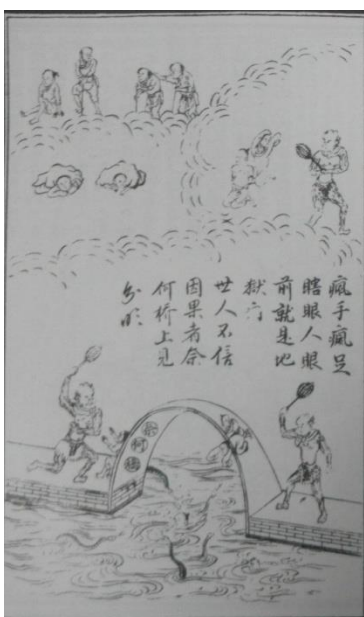 瘋手瘋足
瞎眼人眼
前就是地
獄门
世人不信
因果者奈
何桥上見
分明
奈河橋